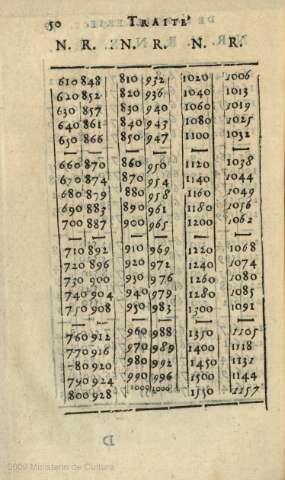 50 TRAITE'
N. R. N. R. N. R.
610 848 810 932 1020 1006
620 852 820 936 1040 1013
630 857 830 940 1060 1019
640 861 840 943 1080 1025
650 866 850 947 1100 1032
660 870 860 950 1120 1038
670 874 870 954 1140 1044
680 879 880 958 1160 1049
690 883 890 961 1180 1056
700 887 900 965 1200 1062
710 892 910 969 1220 1068
720 896 920 972 1240 1074
730 900 930 976 1260 1080
740 904 940 979 1280 1085
750 908 950 983 1300 1091
760 912 960 988 1350 1105
770 916 970 989 1400 1118
780 920 980 992 1450 1131
790 924 990 996 1500 1144
800 928 1000 1000 1550 1157
2009 Ministerio de Cultura